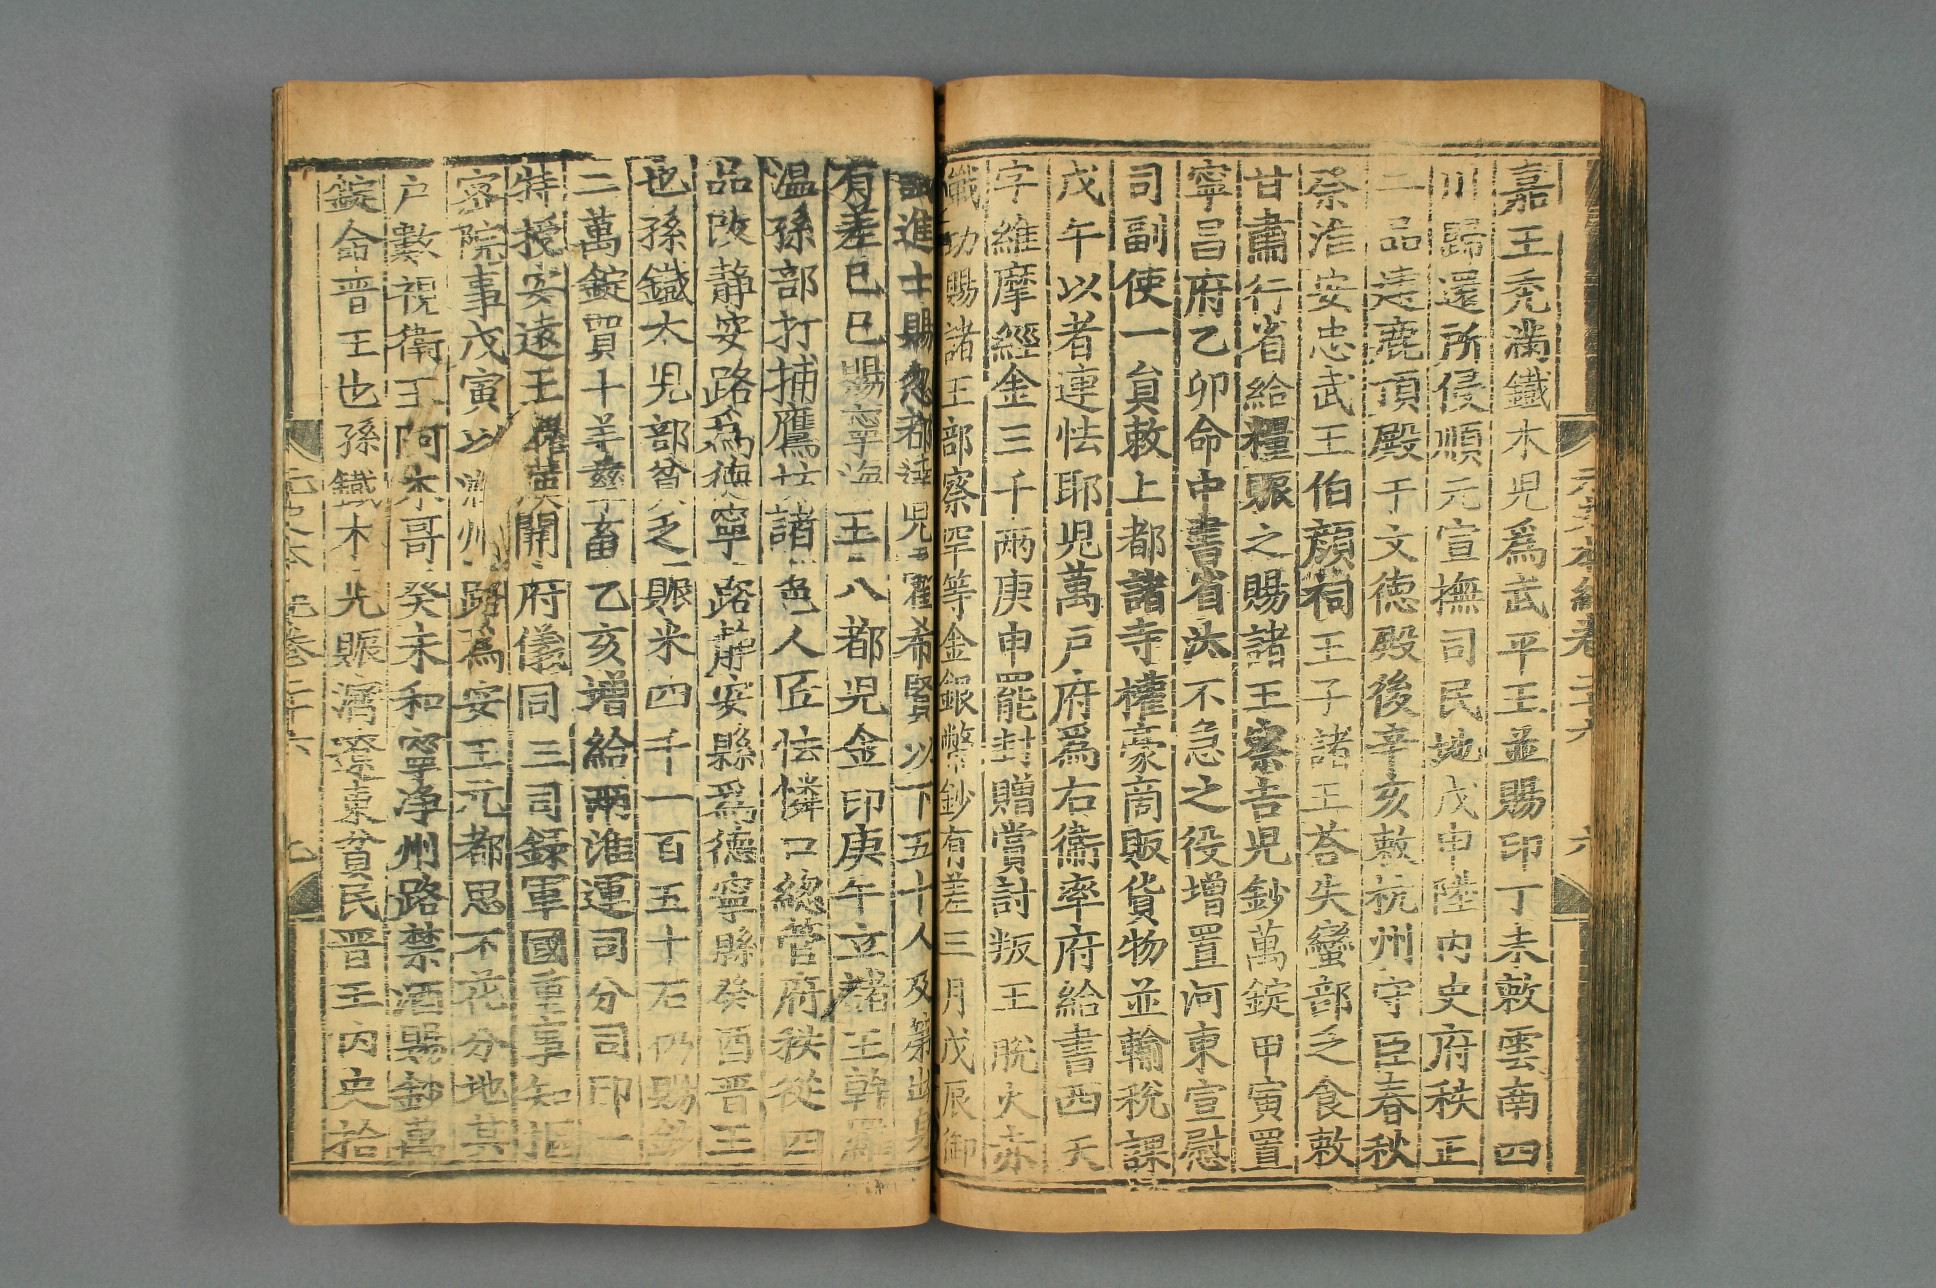 元史本紀卷二十六
六
嘉王禿滿鐵木兒爲武平王並賜印丁未敕雲南四
川歸還所侵順元宣撫司民地戊申陞内史府秩正
二品造鹿頂殿于文德殿後辛亥敕杭州守臣春秋
祭淮安忠武王伯顔祠王子諸王荅失蠻部乏食敕
甘肅行省給糧賑之賜諸王察吉兒鈔萬錠甲寅置
寧昌府乙卯命中書省汰不急之役增置河東宣慰
司副使一員敕上都諸寺權豪商販貨物並輸稅課
戊午以者連怯耶児萬戸府爲右衛率府給書西天
字維摩經金三千兩庚申罷封贈賞討叛王脫火赤
戰功賜諸王部察罕等金銀幣鈔有差三月戊辰御
試進士賜忽都達児霍希賢以下五十人及第出身
有差己巳賜寧海王八都児金印庚午立諸王斡羅
温孫部打捕鷹坊諸色人匠怯憐口總管府秩從四
品改静安路爲德寧路静安縣爲德寧縣癸酉晋王
也孫鐵木児部貧乏賑米四千一百五十石仍賜鈔
二萬錠買十羊孳畜乙亥增給兩淮運司分司印一
特授安遠王 開府儀同三司録軍國重事知樞
密院事戊寅以 州路爲安王元都思不花分地其
戸數視衛王阿木哥癸未和寧淨州路禁酒賜鈔萬
錠命晋王也孫鐵木児賑濟遼東貧民晋王内史拾
元史本紀卷二十六